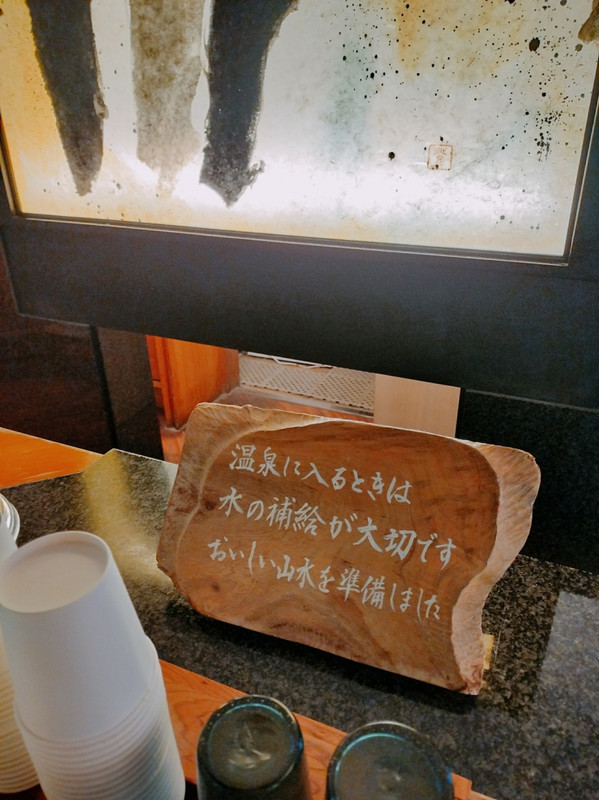 温泉に入るときは
水の補給が大切です
おいしい山水を準備しました